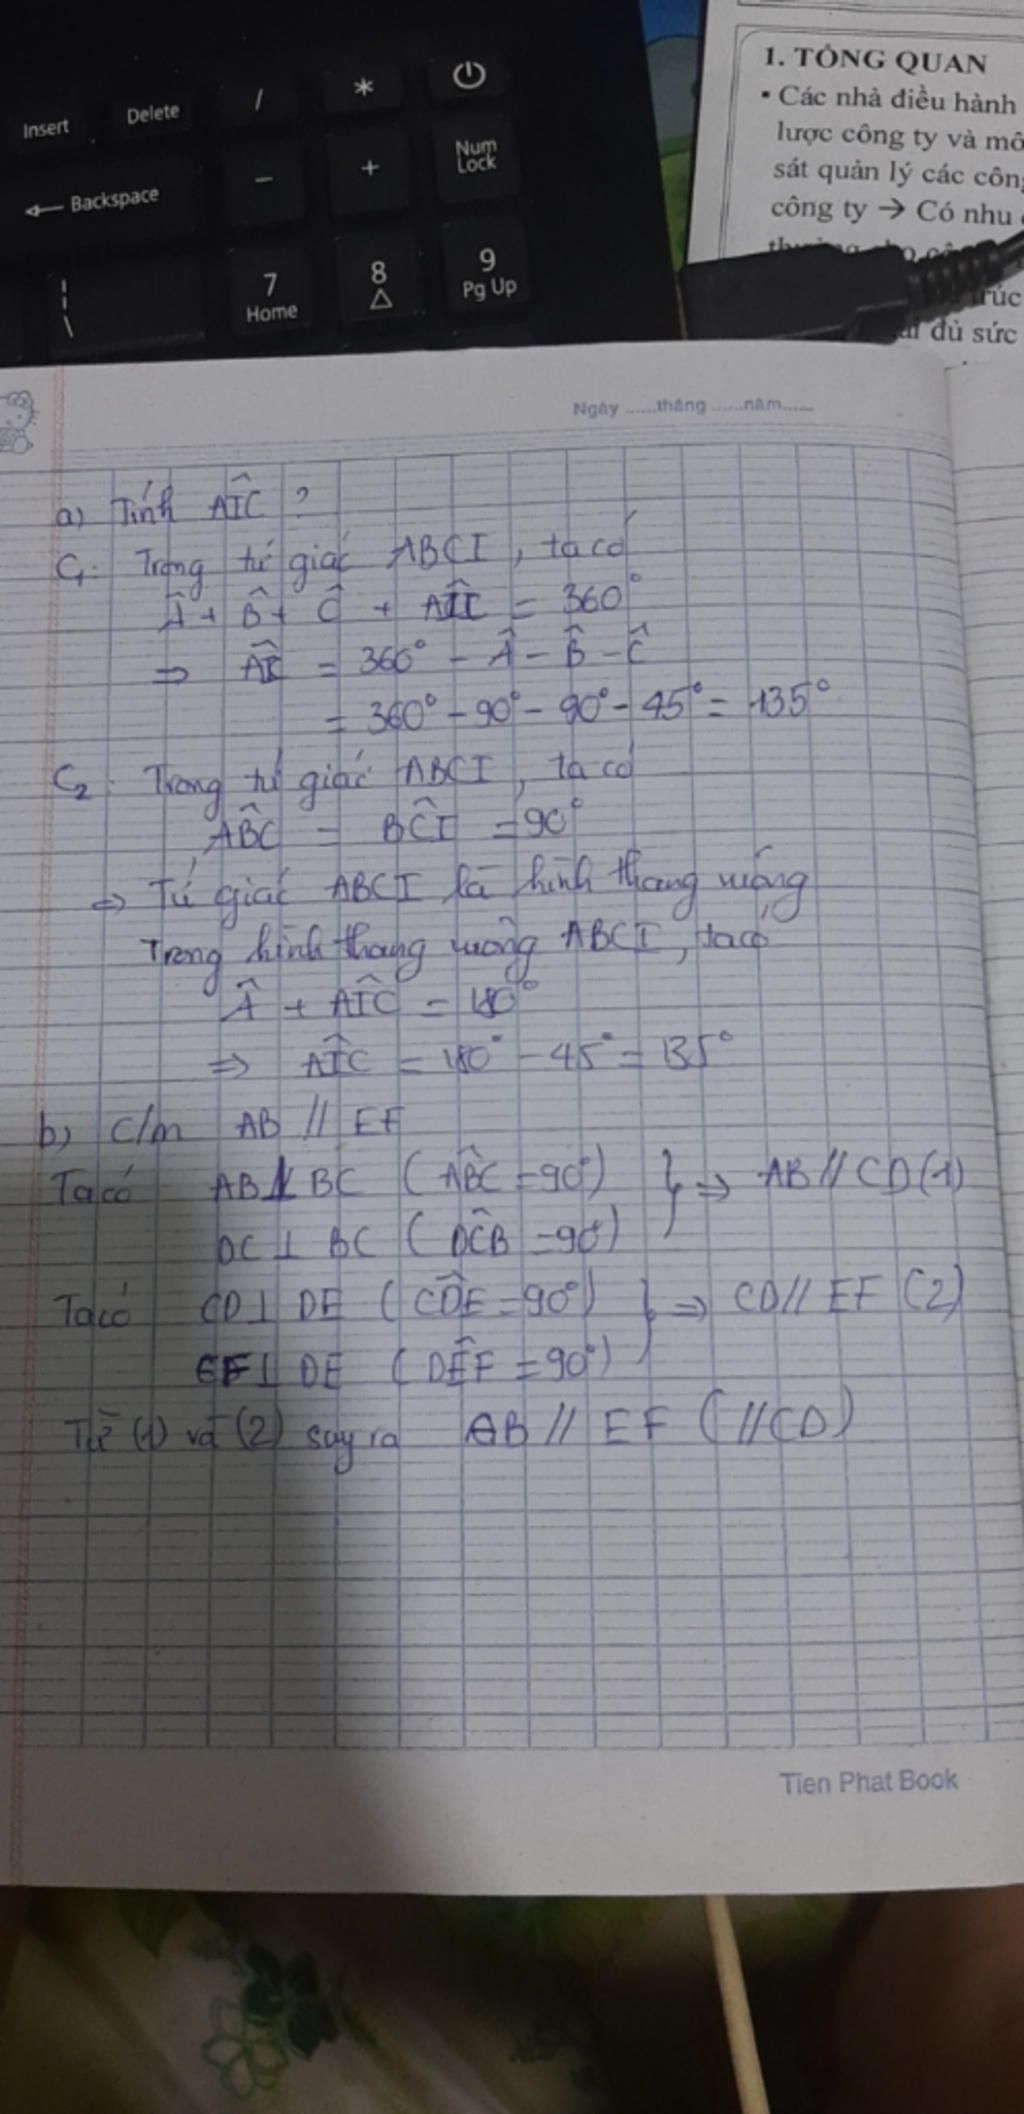 Insert
Delete
/
*
Backspace
-
+
Num
Lock
7
Home
8
9
Pg Up
1. TỔNG QUAN
▪ Các nhà điều hành
lược công ty và
sát quản lý các
công ty → Có nhu
đủ sức
Ngày ......tháng ......năm......
a) Tính AÎC ?
C1: Trong tứ giác ABCI, ta có
Â + B̂ + Ĉ + AÎC = 360°
⇒ AÎC = 360° - Â - B̂ - Ĉ
= 360° - 90° - 90° - 45° = 135°
C2: Trong tứ giác ABCI, ta có
AB̂C = BĈI = 90°
⇒ Tứ giác ABCI là hình thang vuông
Trong hình thang vuông ABCI, ta có
Â + AÎC = 180°
⇒ AÎC = 180° - 45° = 135°
b) C/m AB // EF
Ta có AB ⊥ BC (AB̂C = 90°) } ⇒ AB // CD (1)
DC ⊥ BC (DĈB = 90°)
Ta có CD ⊥ DE (CD̂E = 90°) } ⇒ CD // EF (2)
EF ⊥ DE (DÊF = 90°)
Từ (1) và (2) suy ra AB // EF (// CD)
Tien Phat Book